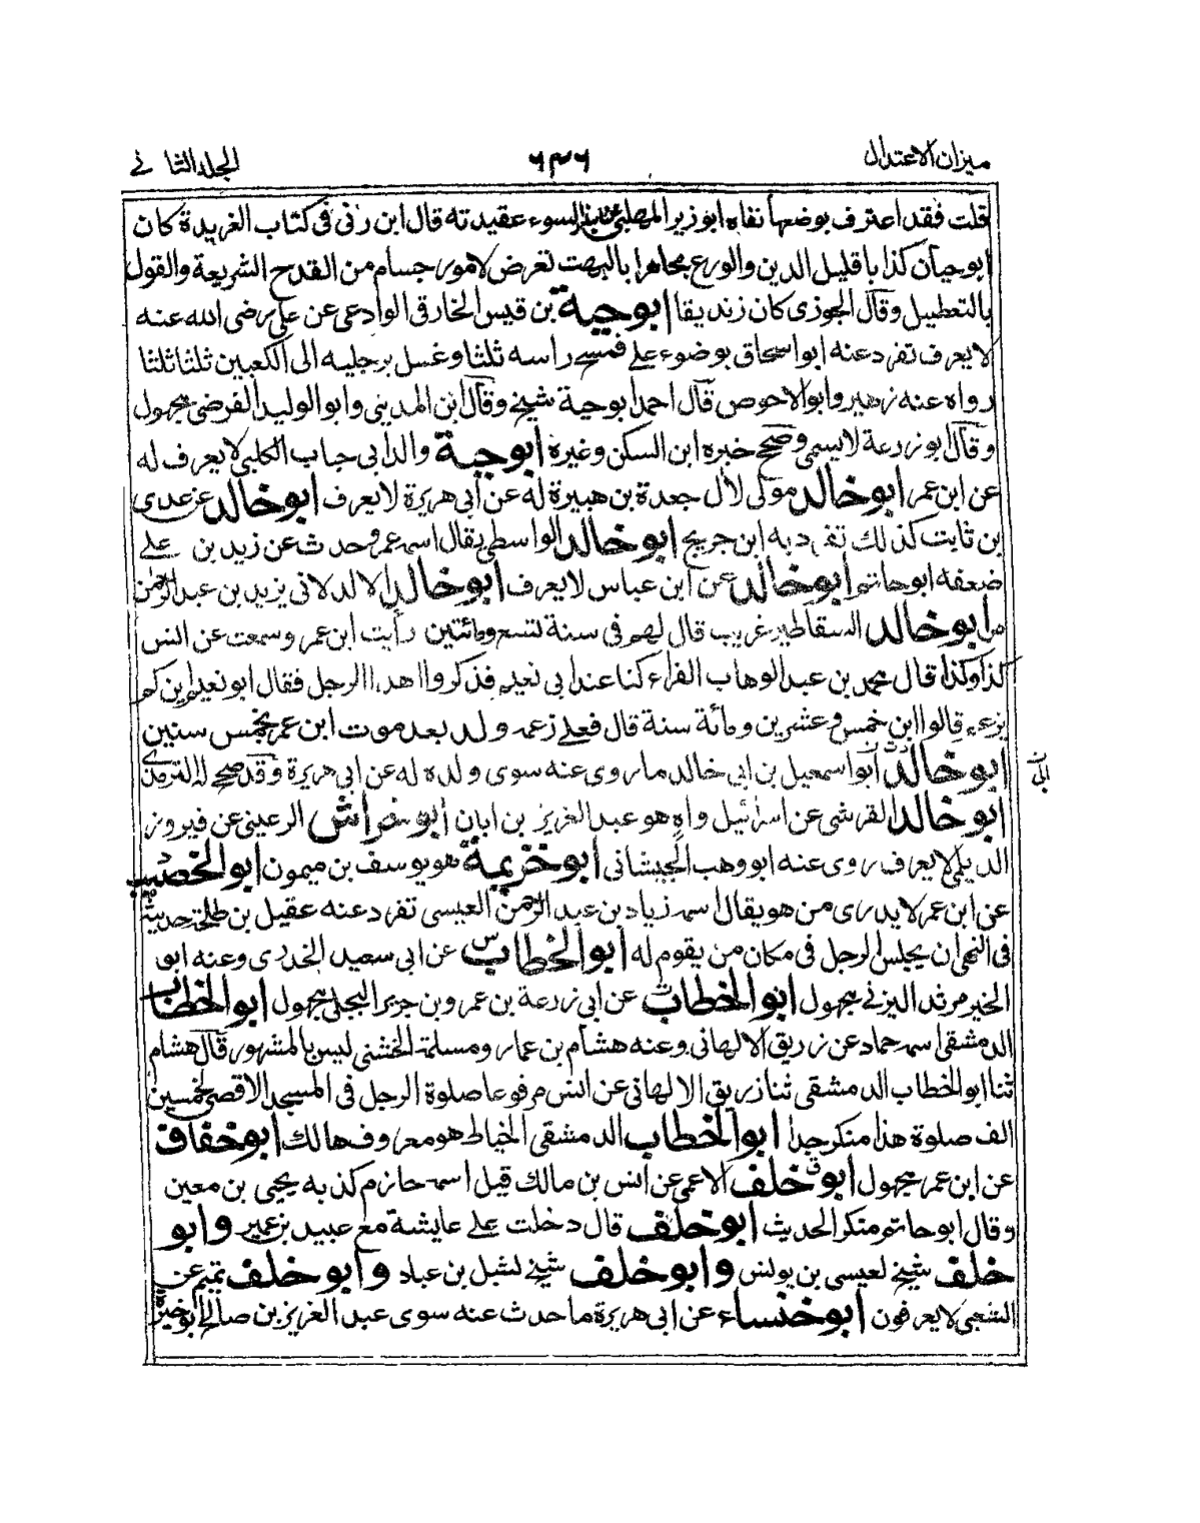 ميزان الاعتدال
٦٣٦
الجلد الثاني
قلت فقد اعترف بوضعها نفاه ابو زير المهلبي لسوء عقيدته قال ابن في كتاب الفريدة كان
ابو حيان كذابا قليل الدين والورع مجاهرا بالبهت تعرض لامور جسام من القدح الشريعة والقول
بالتعطيل وقال الجوزى كان زنديقا ابو حية بن قيس الخارقى الوادعى عن على رضى الله عنه
لا يعرف تفرد عنه ابو اسحاق بوضوء على فمسح راسه ثلثا وغسل رجليه الى الكعبين ثلثا ثلثا
رواه عنه زهير وابو الاحوص قال احمد ابو حية شيخ وقال ابن المديني وابو الوليد الفرضى مجهول
وقال ابو زرعة لا يسمى وصحح خبره ابن السكن وغيره ابو حية والد ابى جناب الكلبى لا يعرف له
عن ابن عمر ابو خالد مولى لال جعدة بن هبيرة له عن ابى هريرة لا يعرف ابو خالد عن عدى
بن ثابت كذلك تفرد به ابن جريج ابو خالد الواسطى يقال اسمه عمرو حدث عن زيد بن على
ضعفه ابو حاتم ابو خالد عن ابن عباس لا يعرف ابو خالد الدالانى يزيد بن عبد الرحمن
مر ابو خالد السقا طير غريب قال لهم فى سنة تسع ومائتين رأيت ابن عمر وسمعت عن انس
كذا وكذا قال محمد بن عبد الوهاب الفراء كنا عند ابى نعيم فذكروا هذا الرجل فقال ابو نعيم ابن كم
يزعم قالوا ابن خمس وعشرين ومائة سنة قال فعلى زعمه ولد بعد موت ابن عمر بخمس سنين
ابو خالد ابو اسمعيل بن ابى خالد ما روى عنه سوى ولده له عن ابى هريرة وقد صحح له الترمذى
ابو خالد القرشى عن اسرائيل واه هو عبد العزيز بن ابان ابو خراش الرعينى عن فيروز
الديلمى لا يعرف روى عنه ابو وهب الجيشانى ابو خزيمة هو يوسف بن ميمون ابو الخصيب
عن ابن عمر لا يدرى من هو يقال اسمه زياد بن عبد الرحمن العبسى تفرد عنه عقيل بن طلحة حديثه
فى النهى ان يجلس الرجل فى مكان من يقوم له ابو الخطاب عن ابى سعيد الخدرى وعنه ابو
الخير مرثد اليزني مجهول ابو الخطاب عن ابى زرعة بن عمرو بن جرير البجلى مجهول ابو الخطاب
الدمشقى اسمه حماد عن زريق الالهانى وعنه هشام بن عمار ومسلمة الخشنى ليس بالمشهور قال هشام
ثنا ابو الخطاب الدمشقى ثنا زريق الالهانى عن انس مرفوعا صلوة الرجل فى المسجد الاقصى بخمسين
الف صلوة هذا منكر جدا ابو الخطاب الدمشقى الخياط هو معروف هالك ابو خفاف
عن ابن عمر مجهول ابو خلف الاعمى عن انس بن مالك قيل اسمه حازم كذبه يحيى بن معين
وقال ابو حاتم منكر الحديث ابو خلف قال دخلت على عايشة مع عبيد بن عمير وابو
خلف شيخ لعيسى بن يونس وابو خلف شيخ لشبل بن عباد وابو خلف تميم عن
الشعبى لا يعرفون ابو خنساء عن ابى هريرة ما حدث عنه سوى عبد العزيز بن صالح ابو خير